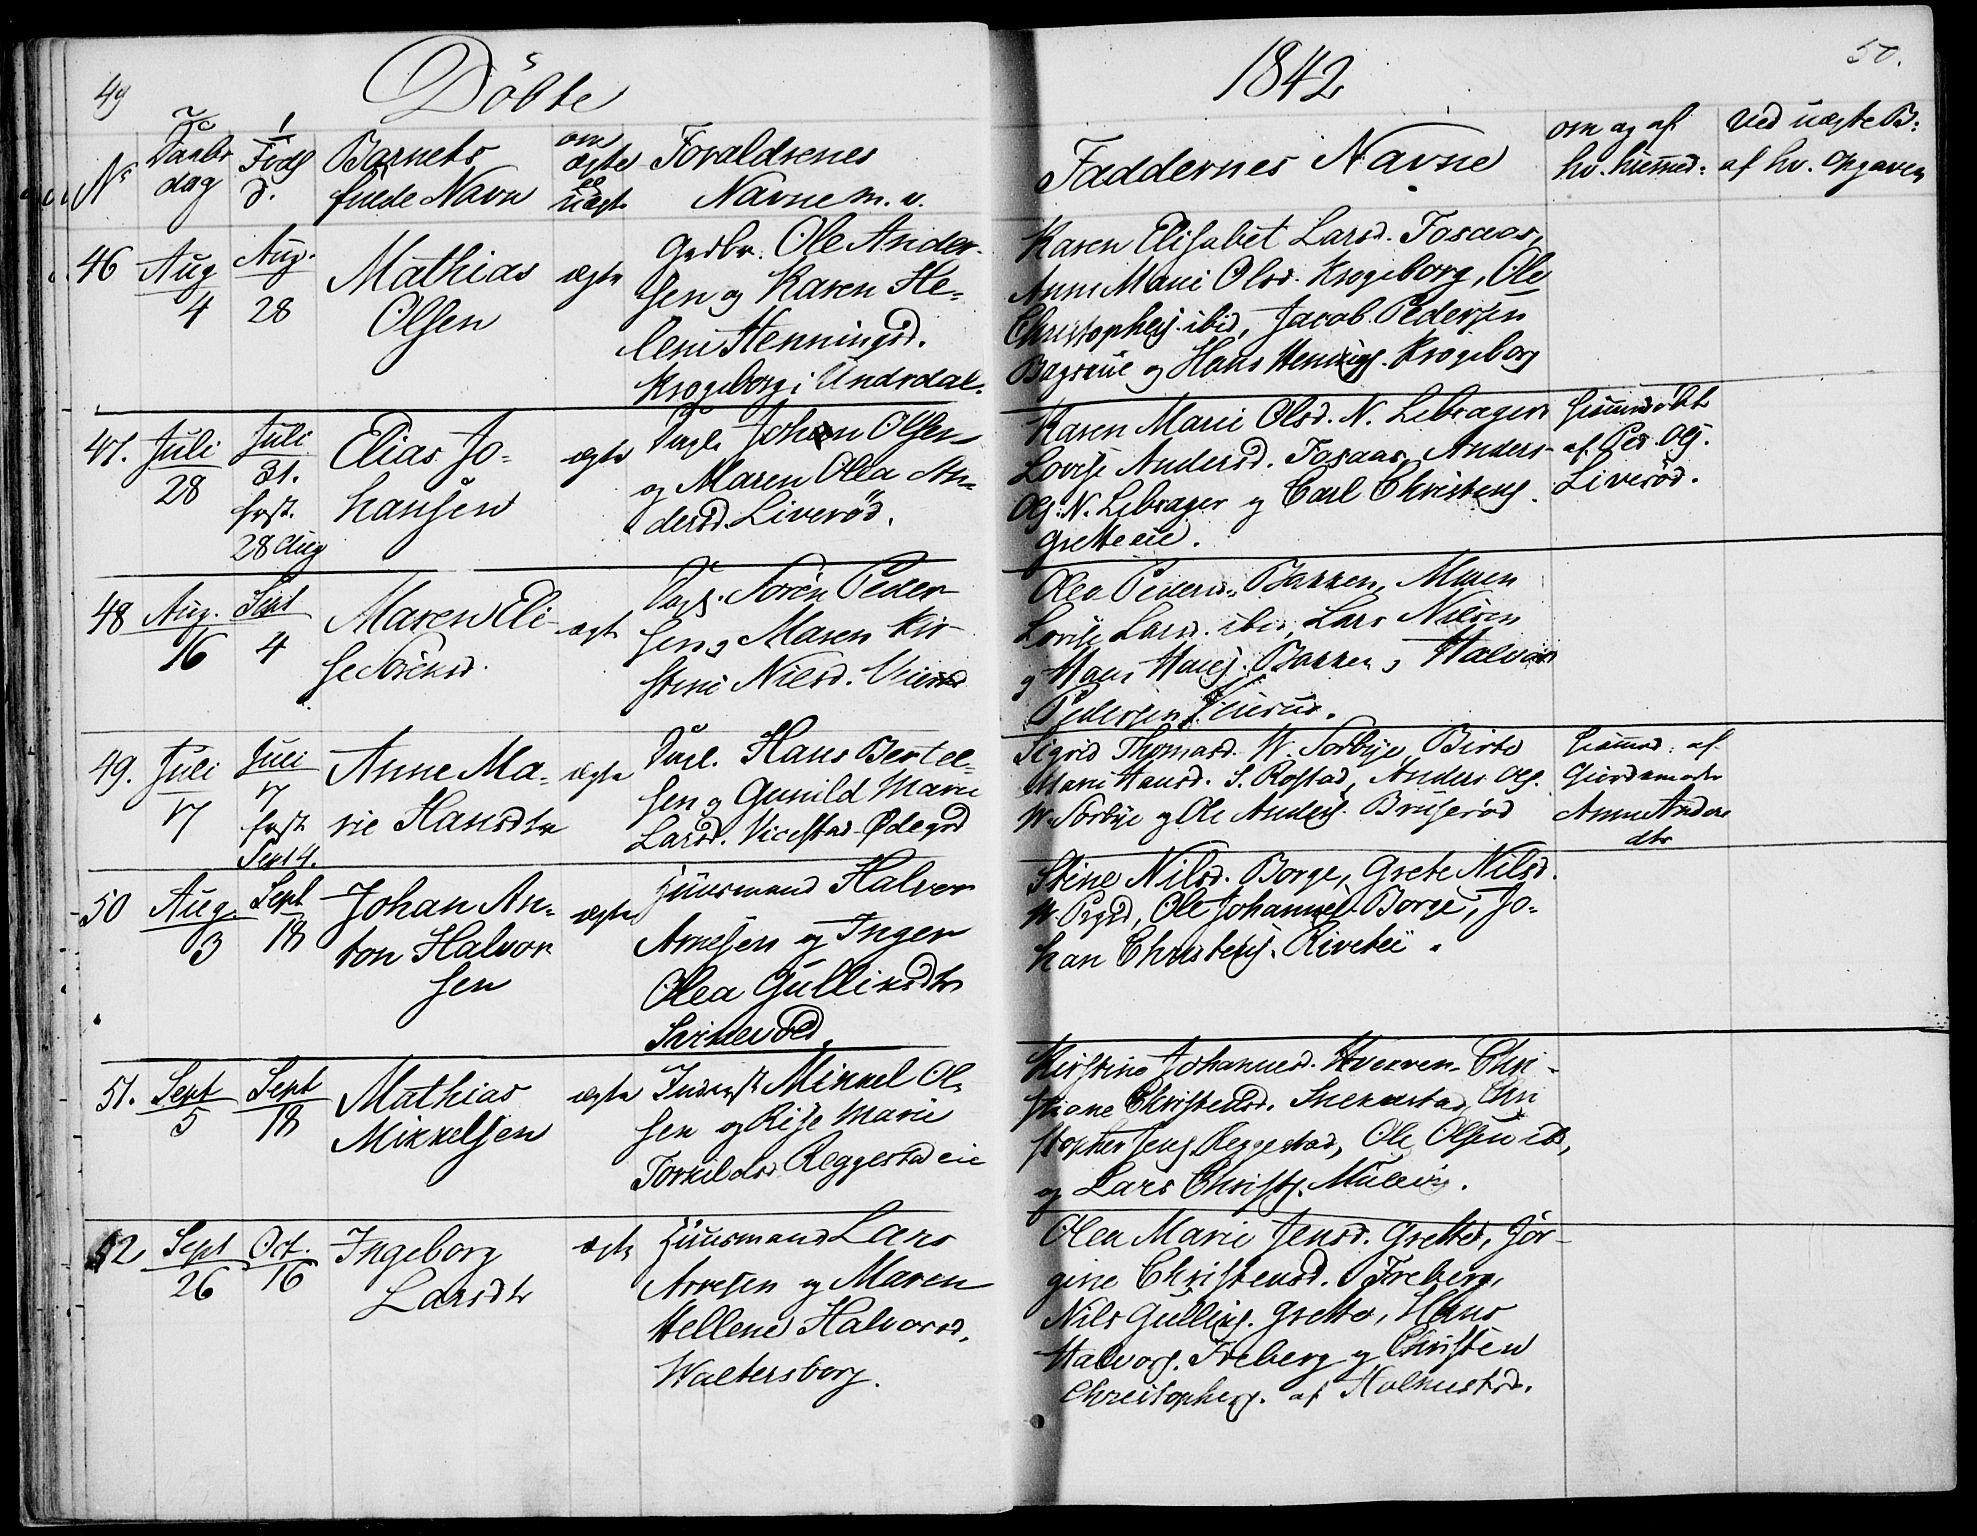 49
Döbte
1842
50.
No
Daabs
dag
Föds
d.
Barnets
fulde Navn
om
ægte
el
uægte
Forældrenes
Navne m. v.
Faddernes Navne
om og af
hv. hiemmed:
ved uægte B:
af hv. Opgaven
46
Aug
4
Aug.
28
Mathias
Olsen
ægte
Grdbr. Ole Ander-
sen og Karen He-
lene Henningsd.
Krogeborg i Undrdal.
Karen Elisabet Larsd. Fosaas,
Anne Marie Olsd. Krogeborg, Ole
Christophers. ibid, Jacob Pedersen
og Hans Hennings. Krogeborg
47.
Juli
28
Juli
31.
frst.
28 Aug
Elias Jo-
hansen
ægte
Johan Olsen
og Maren Olea An-
dersd. Liveröd.
Karen Marie Olsd. N. Lebrager
Lovise Andersd. Fosaas, Anders
Ols. N. Lebrager og Carl Christens.
Gretteeie.
hiemmedöbt
af Ped. Ols.
Liveröd.
48
Aug.
16
Sept
4
Maren Eli-
se Sörensd.
ægte
Sören Peder
sen og Maren Kir-
stine Nilsd.
Olea Pedersd. Bakken, Maren
Lovise Larsd. ibid, Lars Nilsen
og Hans Hans. Bakken, Halvor
Pedersen
49.
Juli
17
Juli
17
frst
Sept 4.
Anne Ma-
rie Hansdtr
ægte
Hans Bertel-
sen og Gunild Marie
Larsd. Vicestad Ødegrd
Sigrid Thomasd. W. Sorbye, Birte
Marie Hansd. S. Rostad, Anders Ols.
W. Sorbye og Ole Anders. Bruseröd
hiemmed: af
Giordemoder
Anne Anders
dtr
50
Aug.
3
Sept
18
Johan An-
ton Halvor
sen
ægte
Huusmand Halvor
Arnesen og Inger
Olea Gulliksdtr
Skinevold.
Stine Nilsd. Borge, Grete Nilsd.
Ole Johannes. Borge, Jo-
han Christens.
51.
Sept
5
Sept
18
Mathias
Mikkelsen
ægte
Inderst Mikkel Ol-
sen og Rise Marie
Torkildsd. Reggestad eie
Kirstine Johannesd. Kverven, Chri-
stiane Christensd. Snekestad, Chri
stopher Jens. Reggestad, Ole Olsen ib,
og Lars Christs.
52
Sept
26
Oct.
16
Ingeborg
Larsdtr
ægte
Huusmand Lars
Arnesen og Maren
Hellene Halvorsd.
Waltersborg.
Olea Marie Jensd. Grette, Jör-
gine Christensd. Freberg,
Nils Gulliks. Grette, Hans
Halvors. Freberg og Christen
Christophers. af Holmestrd.